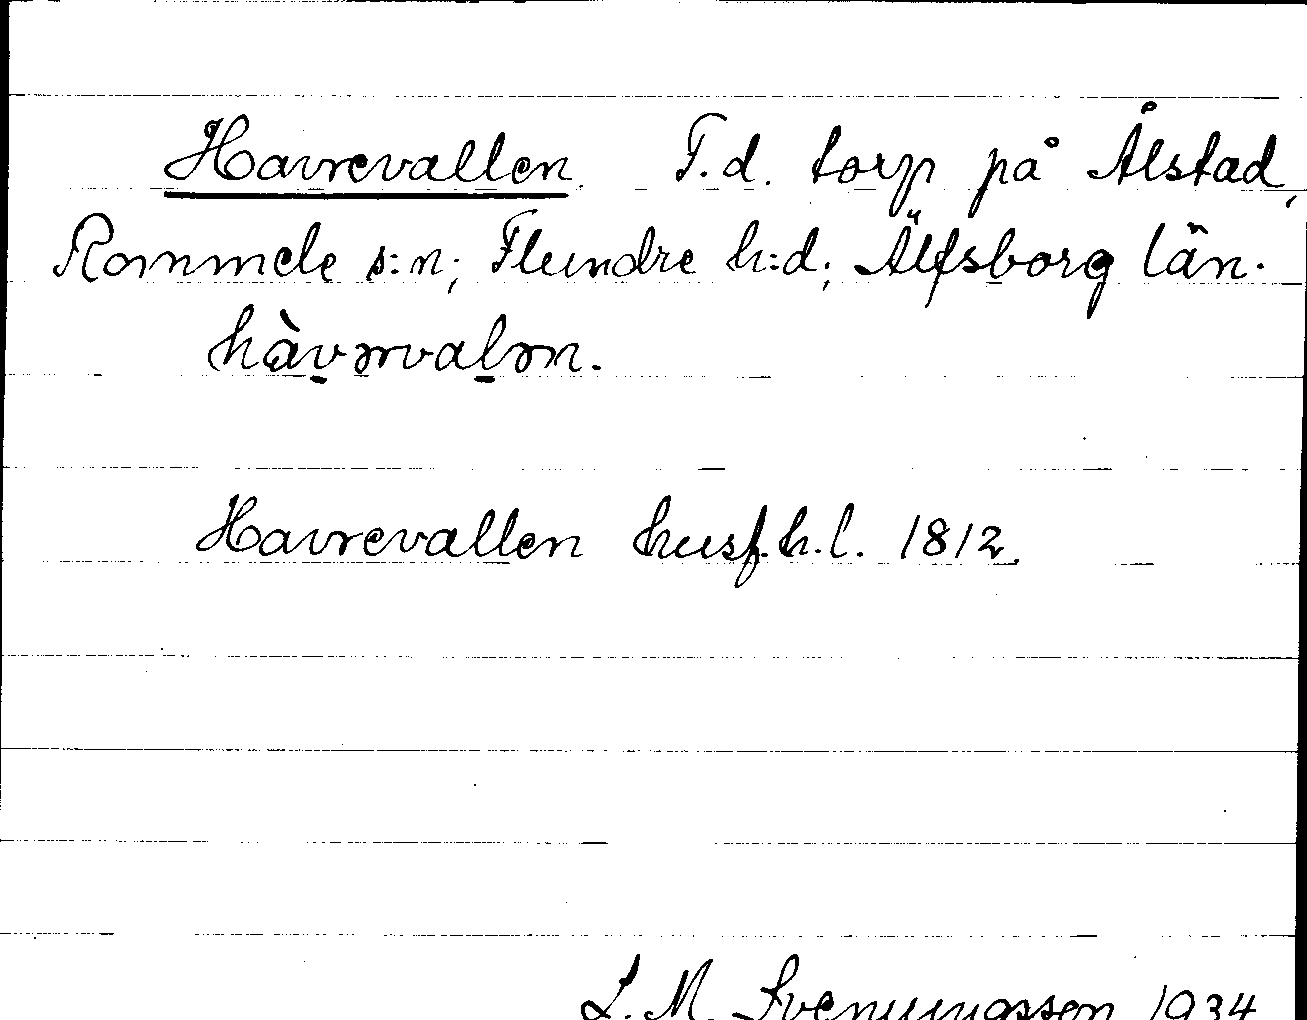 Havrevallen. F.d. torp på Ålstad,
Rommele s:n; Flundre h:d; Älfsborg län.
hàv̲ərval̲ən.
Havrevallen husf.h.l. 1812.
L. M. Svenungsson 1934